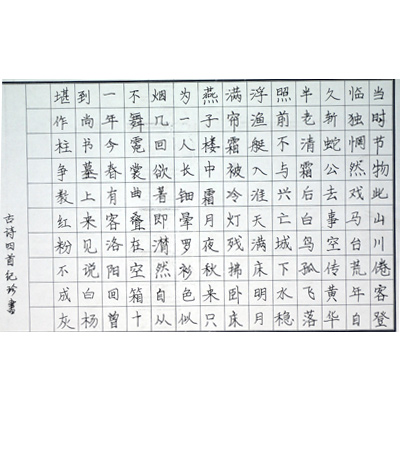 当时节物此山川倦客登
临独惘然戏马台荒年自
久斩蛇公去事空传黄华
半老清霜后白鸟孤飞落
照前不与兴亡城下水稳
浮渔艇入淮天满床明月
满帘霜被冷灯残拂卧床
燕子楼中霜月夜秋来只
为一人长钿晕罗衫色似
烟几回欲著即潸然自从
不舞霓裳曲叠在空箱十
一年今春有客洛阳回曾
到尚书墓上来见说白杨
堪作柱争教红粉不成灰
古诗四首纪珍书